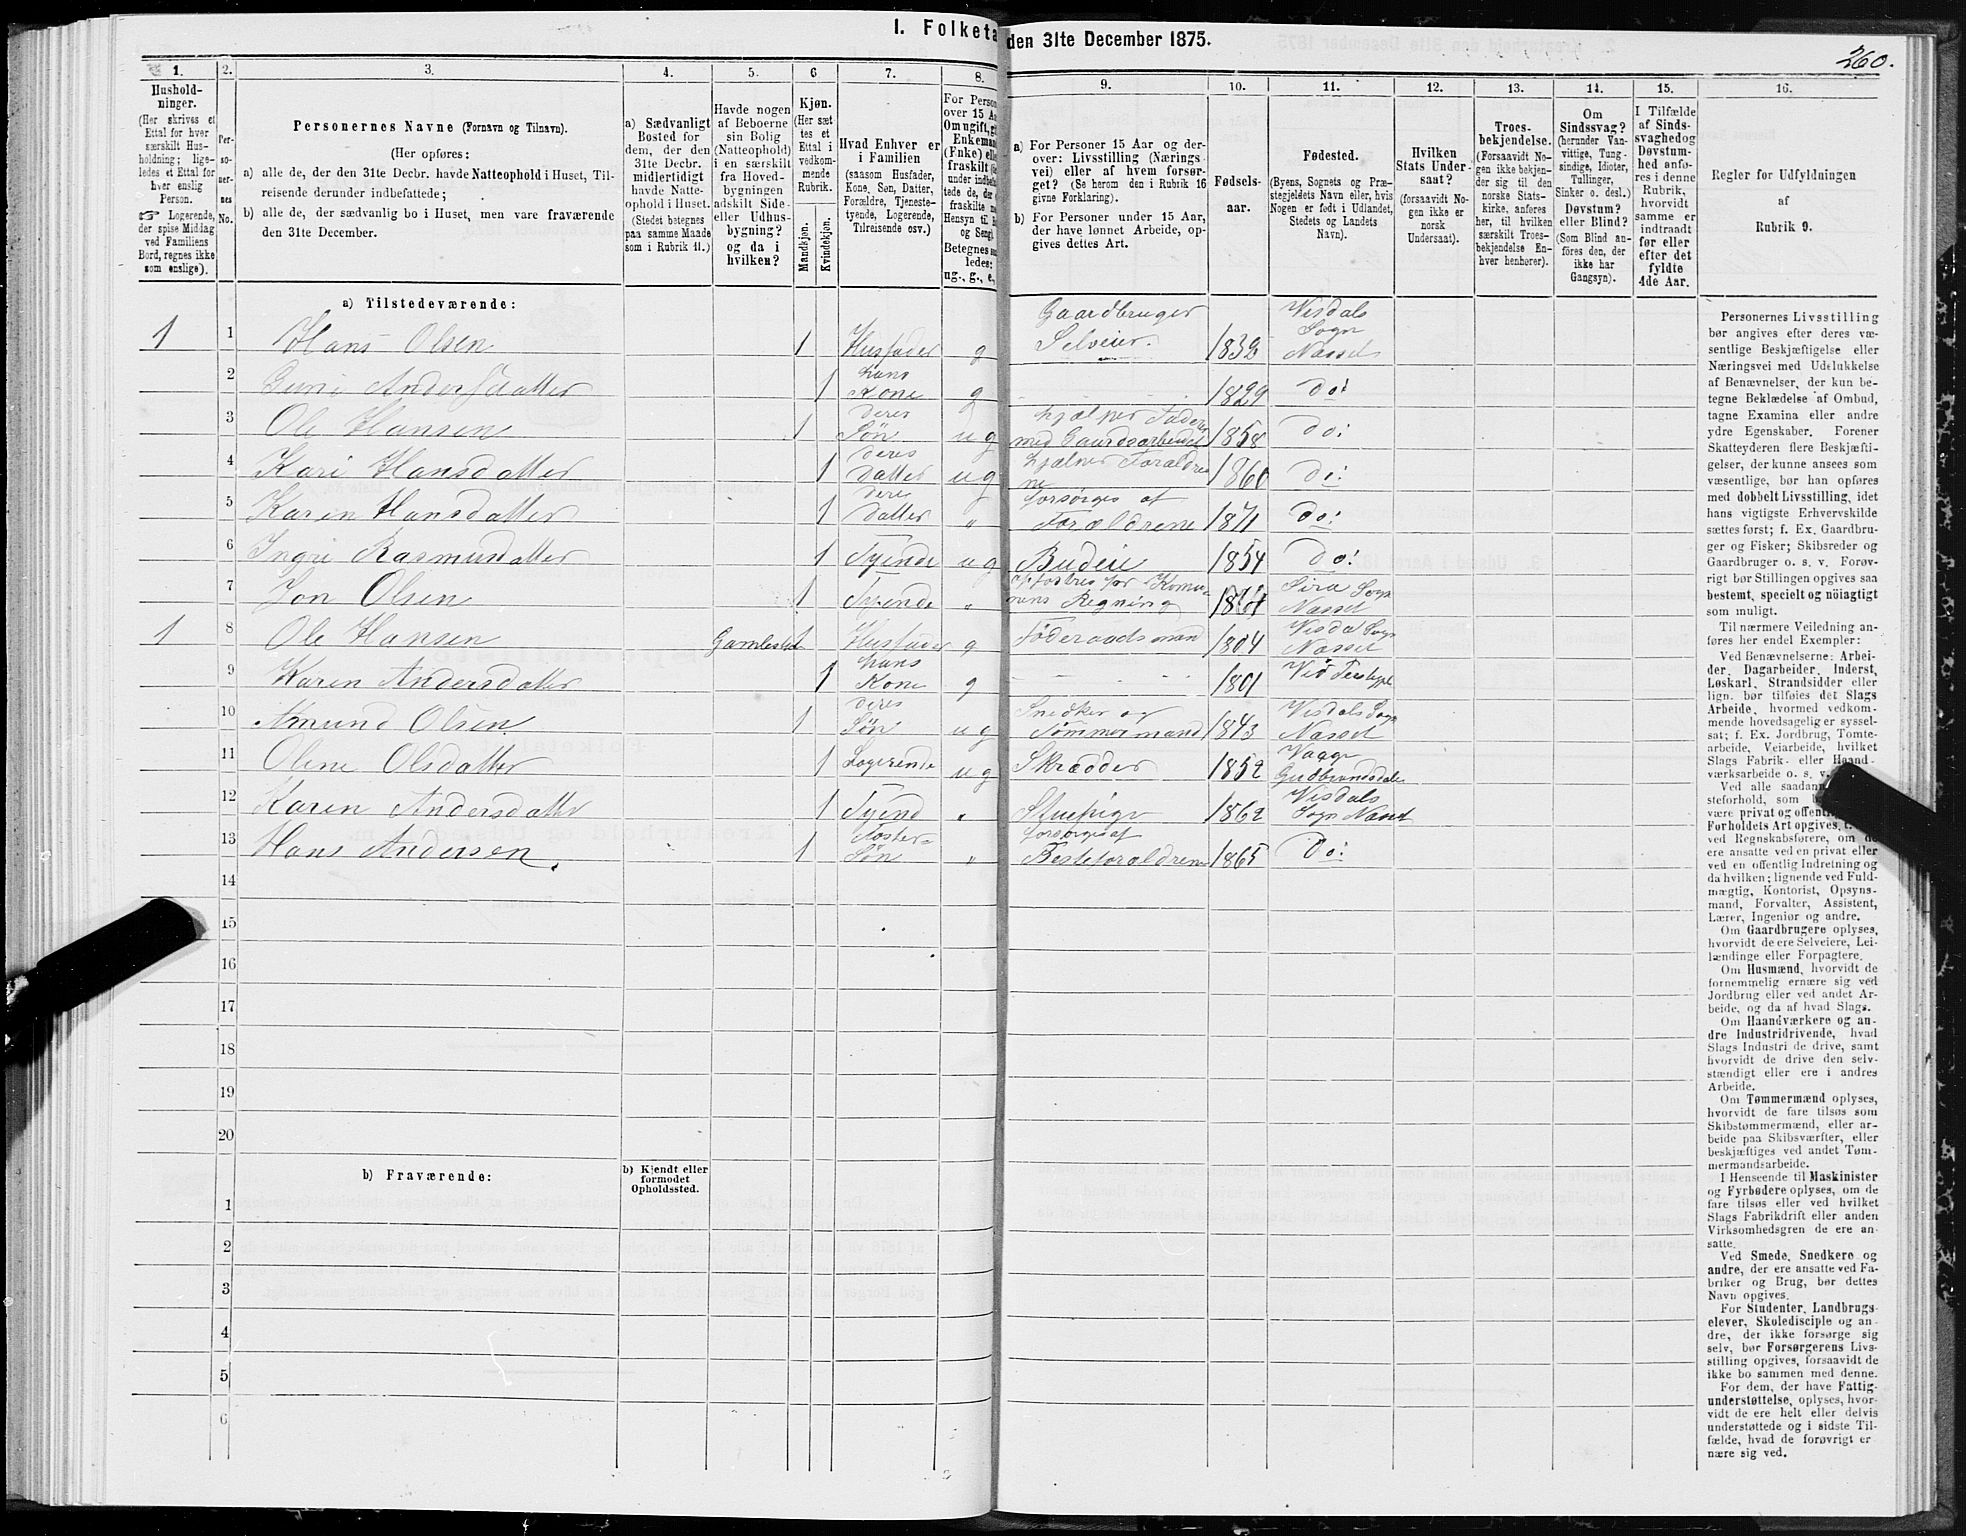 I. Folketa
den 31te December 1875.
260.
1.
2.
3.
4.
5.
6
7.
8.
9.
10.
11.
12.
13.
14.
15.
16.
Hushold-
ninger.
(Her skrives et
Ettal for hver
særskilt Hus-
holdning; lige-
ledes et Ettal for
hver enslig
Person.
☞ Logerende,
der spise Middag
ved Familiens
Bord, regnes ikke
som enslige).
Per-
so-
ner-
nes
No.
Personernes Navne (Fornavn og Tilnavn).
(Her opføres:
a) alle de, der den 31te Decbr. havde Natteophold i Huset, Til-
reisende derunder indbefattede;
b) alle de, der sædvanlig bo i Huset, men vare fraværende
den 31te December.
a) Sædvanligt
Bosted for
dem, der den
31te Decbr.
midlertidigt
havde Natte-
ophold i Huset.
(Stedet betegnes
paa samme Maade
som i Rubrik 11.)
Havde nogen
af Beboerne
sin Bolig
(Natteophold)
i en særskilt
fra Hoved-
bygningen
adskilt Side-
eller Udhus-
bygning?
og da i
hvilken?
Kjøn.
(Her sæt
tes et
Ettal i
vedkom-
mende
Rubrik.
Mandkjøn.
Kvindekjøn.
Hvad Enhver er
i Familien
(saasom Husfader,
Kone, Søn, Datter,
Forældre, Tjeneste-
tyende, Logerende,
Tilreisende osv.)
For Person
over 15 Aa
Om ugift, gi
Enkeman
(Enke) elle
fraskilt (
under indbe
tede de, der
fraskilte
Hensyn til
og Seng).
Betegnes s
ledes:
ug., g., e,
a) For Personer 15 Aar og der-
over: Livsstilling (Nærings-
vei) eller af hvem forsør-
get? (Se herom den i Rubrik 16
givne Forklaring).
b) For Personer under 15 Aar,
der have lønnet Arbeide, op-
gives dettes Art.
Fødsels-
aar.
Fødested.
(Byens, Sognets og Præ-
stegjeldets Navn eller, hvis
Nogen er født i Udlandet,
Stedets og Landets
Navn).
Hvilken
Stats Under-
saat?
(forsaavidt No-
gen ikke er
norsk
Undersaat).
Troes-
bekjendelse.
(Forsaavidt No-
gen ikke bekjen-
der sig til den
norske Stats-
kirke, anføres
her, til hvilken
særskilt Troes-
bekjendelse En-
hver henhører).
Om
Sindssvag?
(herunder Van-
vittige, Tung-
sindige, Idioter,
Tullinger,
Sinker o. desl.)
Døvstum?
eller Blind?
(Som Blind an-
føres den, der
ikke har
Gangsyn).
I Tilfælde
af Sinds-
svaghed og
Døvstum-
hed anfø-
res i denne
Rubrik,
hvorvidt
samme er
indtraadt
før eller
efter det
fyldte
4de Aar.
Regler for Udfyldningen
af
Rubrik 9.
a) Tilstedeværende:
1 1 Hans Olsen 1 Husfader g Gaardbruger Selveier. 1832 Visdals Sogn Næsset
2 Guri Andersdatter 1 hans Kone g 1829 Do:
3 Ole Hansen 1 deres Søn ug hjælper Faderen med Gaardsarbeidet 1858 Do:
4 Kari Hansdatter 1 deres Datter ug hjelper Forældrene 1860 Do:
5 Karen Hansdatter 1 deres Datter " forsørges af Forældrene 1871 Do:
6 Ingri Rasmusdatter 1 Tyende ug Budeie 1854 Do:
7 Jon Olsen 1 Tyende " opfostres for Komunens Regning Sira Sogn Næsset
1 8 Ole Hansen 1 Husfader g Föderaadsmand 1804 Visdal Sogn Næsset
9 Karen Andersdatter 1 hans Kone g 1801
10 Amund Olsen 1 deres Søn ug Snedker og Tømmermand 1843 Visdals Sogn Næsset
11 Olene Olsdatter 1 Logerende ug Skrædder 1852 Vaage Gudbrandsdalen
12 Karen Andersdatter 1 Tyend " Stuepige 1862 Visdals Sogn Næsset
13 Hans Andersen. 1 Foster-Søn " forsørges af Besteforældrene 1865 Do:
14
15
16
17
18
19
20
b) Fraværende:
b) Kjendt eller
formodet
Opholdssted.
1
2
3
4
5
6
Personernes Livsstilling
bør angives efter deres væ-
sentlige Beskjæftigelse eller
Næringsvei med Udelukkelse
af Benævnelser, der kun be-
tegne Beklædelse af Ombud,
tagne Examina eller andre
ydre Egenskaber. Forener
Skatteyderen flere Beskjæfti-
gelser, der kunne ansees som
væsentlige, bør han opføres
med dobbelt Livsstilling, idet
hans vigtigste Erhvervskilde
sættes først; f. Ex. Gaardbru-
ger og Fisker; Skibsreder og
Gaardbruger o. s. v. Forøv-
rigt bør Stillingen opgives saa
bestemt, specielt og nöiagtigt
som muligt.
Til nærmere Veiledning an-
føres her endel Exempler:
Ved Benævnelserne: Arbei-
der, Dagarbeider, Inderst,
Løskarl, Strandsidder eller
lign. bør tilføies det Slags
Arbeide, hvormed vedkom-
mende hovedsagelig er syssel-
sat; f. Ex. Jordbrug, Tomte-
arbeide, Veiarbeide, hvilket
Slags Fabrik- eller Haand-
værksarbeide o. s. v.
Ved alle saadan
steforhold, som
være privat og offen
Forholdets Art opgives,
ved Regnskabsførere, om de
ere ansatte ved en privat eller
ved en offentlig Indretning og
da hvilken; lignende ved Fuld-
mægtig, Kontorist, Opsyns-
mand, Forvalter, Assistent,
Lærer, Ingeniør og andre.
Om Gaardbrugere oplyses,
hvorvidt de ere Selveiere, Lei-
lændinge eller Forpagtere.
Om Husmænd, hvorvidt de
fornemmelig ernære sig ved
Jordbrug eller ved andet Ar-
beide, og da af hvad Slags.
Om Haandværkere og an-
dre Industridrivende, hvad
Slags Industri de drive, samt
hvorvidt de drive den selv-
stændigt eller ere i andres
Arbeide.
Om Tømmermænd oplyses,
hvorvidt de fare tilsøs som
Skibstømmermænd, eller ar-
beide paa Skibsværfter, eller
beskjæftiges ved andet Tøm-
mermandsarbeide.
I Henseende til Maskinister
og Fyrbødere oplyses, om de
fare tilsøs eller ved hvilket
Slags Fabrikdrift eller anden
Virksomhedsgren de ere an-
satte.
Ved Smede, Snedkere og
andre, der ere ansatte ved Fa-
briker og Brug, bør dettes
Navn opgives.
For Studenter, Landbrugs-
elever, Skoledisciple og an-
dre, der ikke forsørge sig
selv, bør Forsørgerens Livs-
stilling opgives, forsaavidt de
ikke bo sammen med denne.
For dem, der have Fattig-
understøttelse, oplyses, hvor-
vidt de ere helt eller delvis
understøttede og i sidste Til-
fælde, hvad de forøvrigt er
nære sig ved.